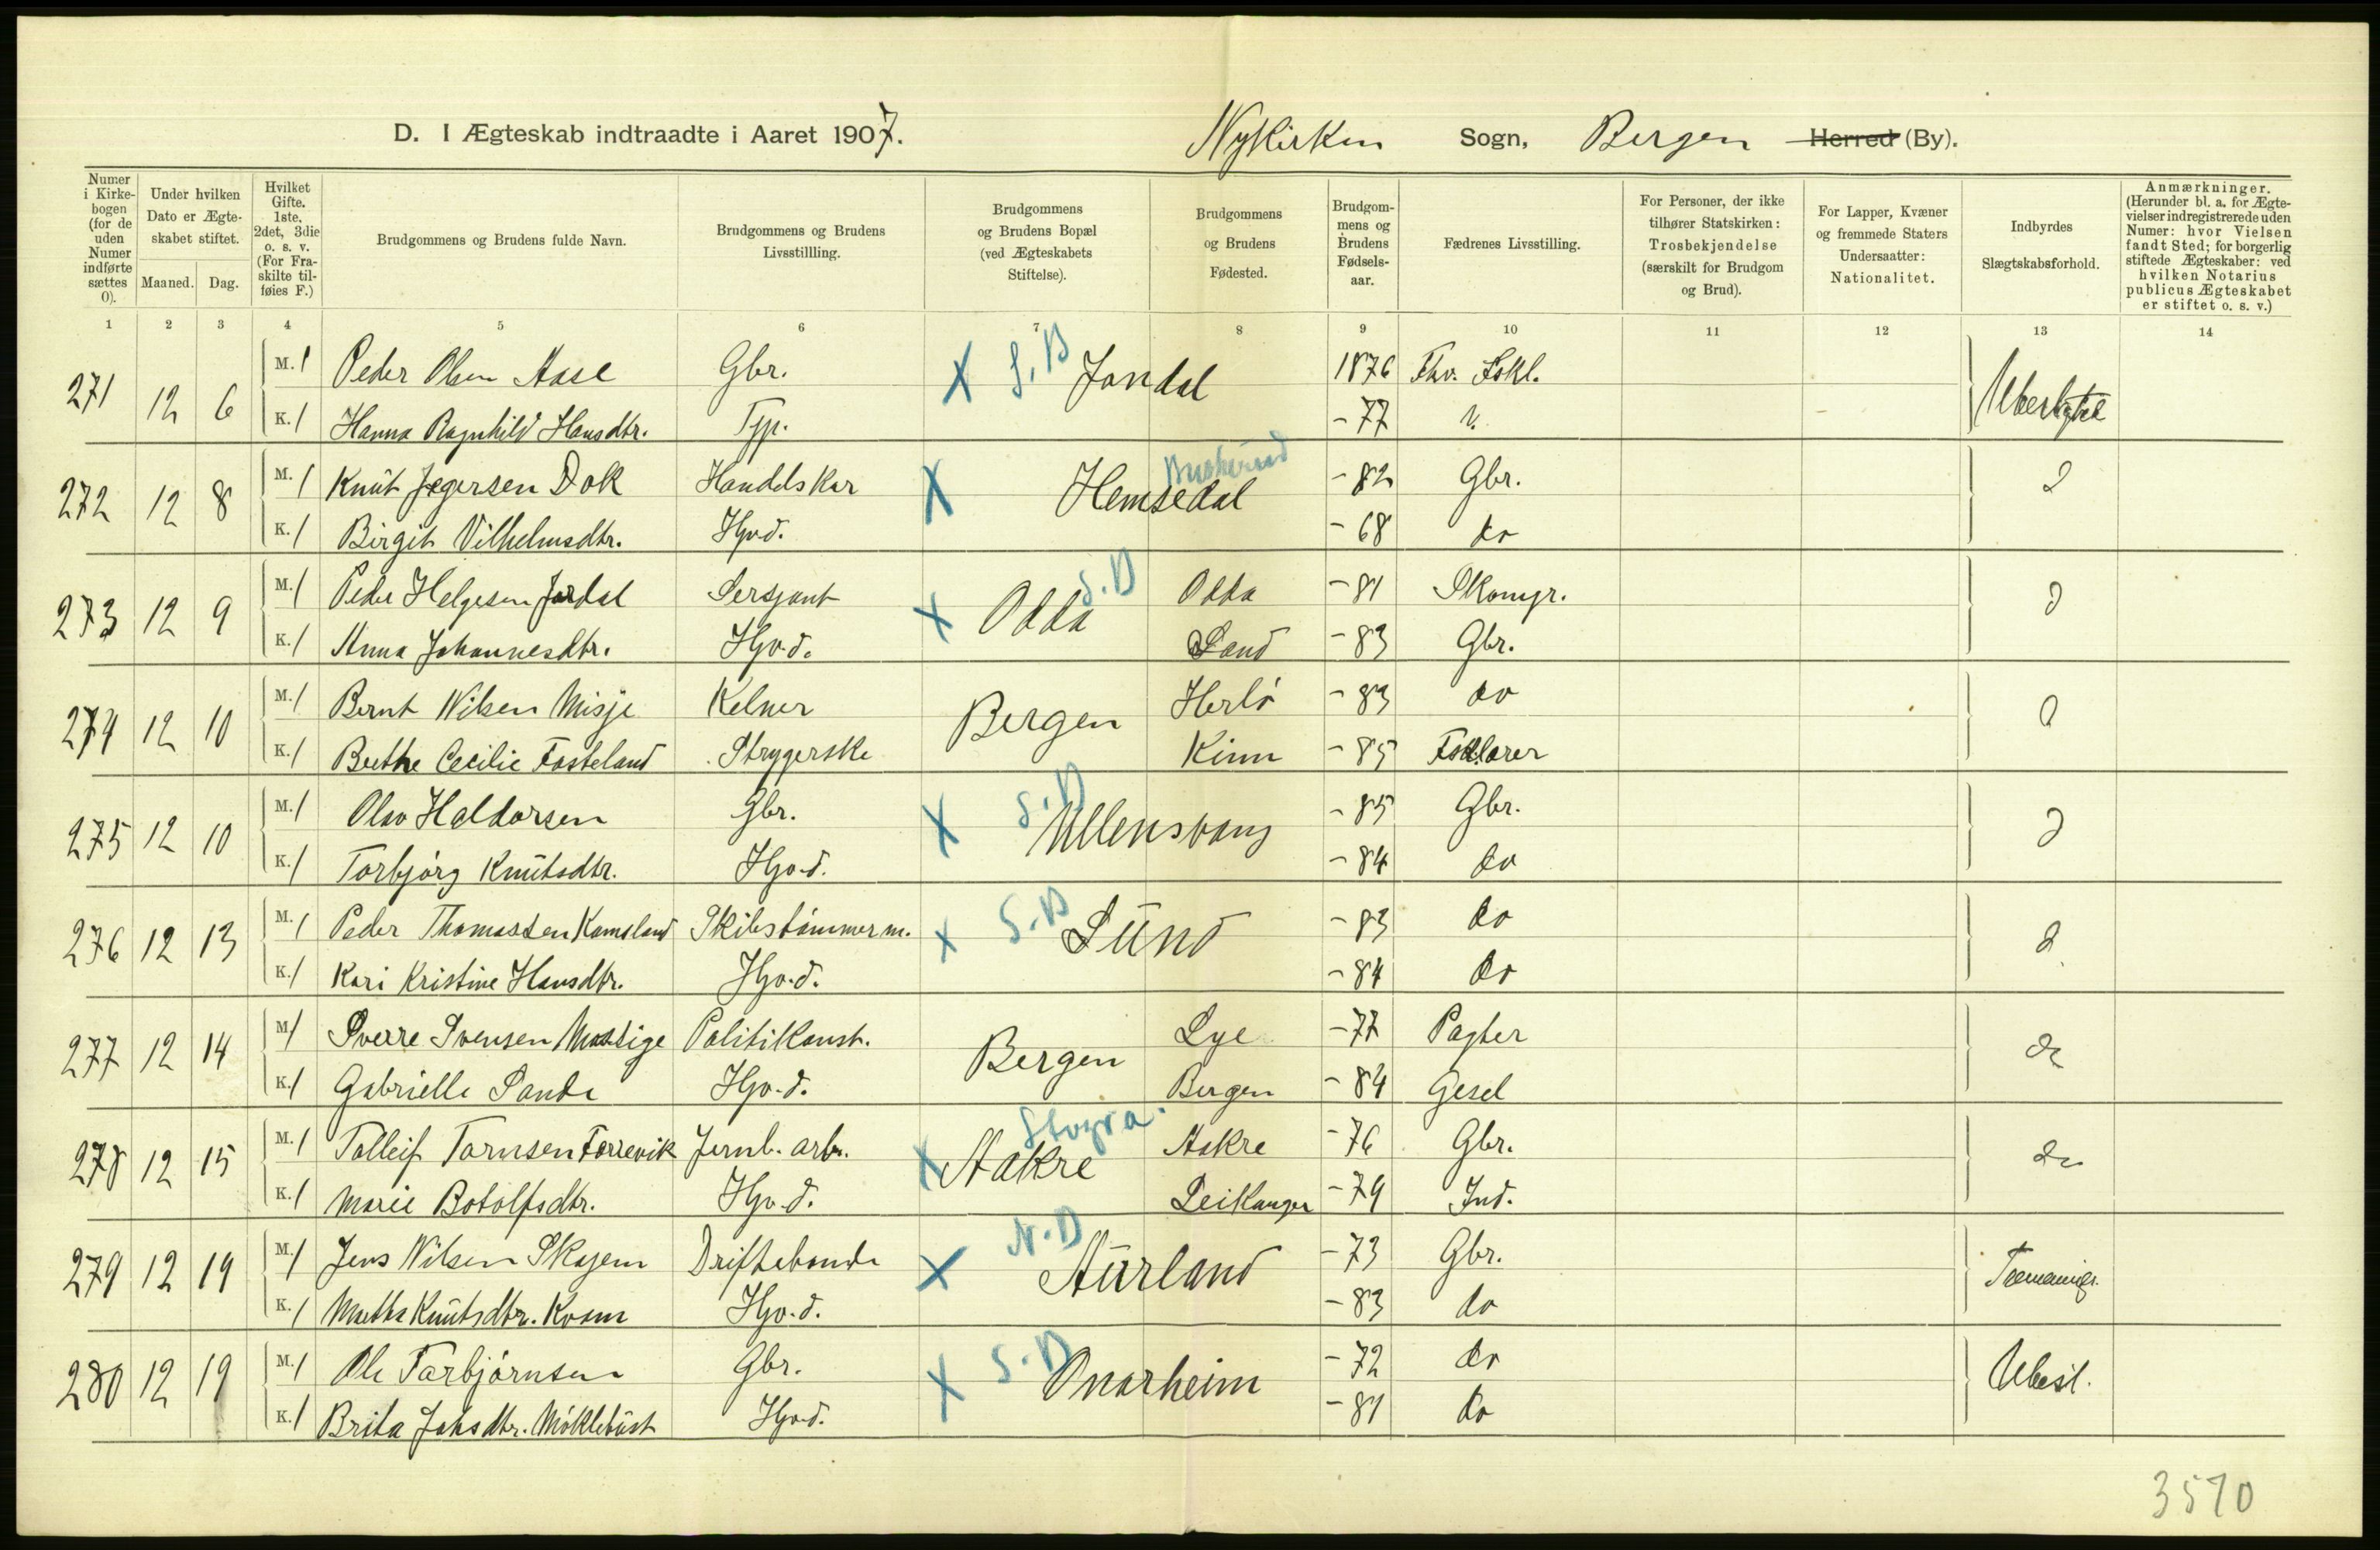 D. I Ægteskab indtraadte i Aaret 1907. Nykirken Sogn, Bergen Herred (By).
Numer i Kirkebogen (for de uden Numer indførte sættes 0).
Under hvilken Dato er Ægteskabet stiftet.
Maaned. Dag.
Hvilket Gifte. 1ste, 2det, 3die o. s. v. (For Fraskilte tilføies F.)
Brudgommens og Brudens fulde Navn.
Brudgommens og Brudens Livsstillling.
Brudgommens og Brudens Bopæl (ved Ægteskabets Stiftelse).
Brudgommens og Brudens Fødested.
Brudgommens og Brudens Fødselsaar.
Fædrenes Livsstilling.
For Personer, der ikke tilhører Statskirken: Trosbekjendelse (særskilt for Brudgom og Brud).
For Lapper, Kvæner og fremmede Staters Undersaatter: Nationalitet.
Indbyrdes Slægtskabsforhold.
Anmærkninger. (Herunder bl. a. for Ægtevielser indregistrerede uden Numer: hvor Vielsen fandt Sted; for borgerlig stiftede Ægteskaber: ved hvilken Notarius publicus Ægteskabet er stiftet o. s. v.)
1 2 3 4 5 6 7 8 9 10 11 12 13 14
271 12 6 M. 1 Peder Olsen Aase Gbr. X S.B Jondal 1876 Fhv. Lskl.
K. 1 Hanna Ragnhild Hansdtr. Tjp. - 77
272 12 8 M. 1 Knut Jegersen Dok Handelskar X Buskerud Hemsedal - 82 Gbr.
K. 1 Birgit Vilhelmsdtr. Hjv.d. - 68 do
273 12 9 M. 1 Peder Helgesen Jordal Sersjant X S.B Odda Odda - 81 Skomgr.
K. 1 Anna Johannesdtr. Hjv.d. Sand - 83 Gbr.
274 12 10 M. 1 Bernt Nilsen Misje Kelner Bergen Herlö - 83 do
K. 1 Berthe Cecilie Fosteland Strygerske Kinn - 85
275 12 10 M. 1 Olav Haldorsen Gbr. X S.B Ullensvang - 85 Gbr.
K. 1 Torbjörg Knutsdtr. Hjv.d. - 84 do
276 12 13 M. 1 Peder Thomassen Kamsland Skibstömmerm. X S.B Lund - 83 do
K. 1 Kari Kristine Hansdtr. Hjv.d. - 84 do
277 12 14 M. 1 Sverre Svensen Politikonst. Bergen Lye - 77 Pagter
K. 1 Gabrielle Sande Hjv.d. Bergen - 84 Gesel
278 12 15 M. 1 Tolleif Tornsen Förrevik Jernb. arb. X Aakre Aakre - 76 Gbr.
K. 1 Marie Botolfsdtr. Hjv.d. Leikanger - 79 Ind.
279 12 19 M. 1 Jens Nilsen Skajem Driftebonde X N.B Aurland - 73 Gbr. Tremening.
K. 1 Martha Knutsdtr. Kvam Hjv.d. - 83 do
280 12 19 M. 1 Ole Torbjörnsen Gbr. X S.B Onarheim - 72 do Ubesl.
K. 1 Brita Johsdtr. Möklebust Hjv.d. - 81 do
3570